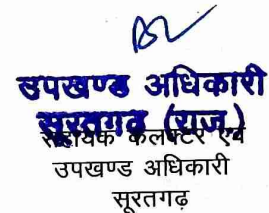 उपखण्ड अधिकारी
सूरतगढ़ (राज.)
सहायक कलक्टर एवं
उपखण्ड अधिकारी
सूरतगढ़